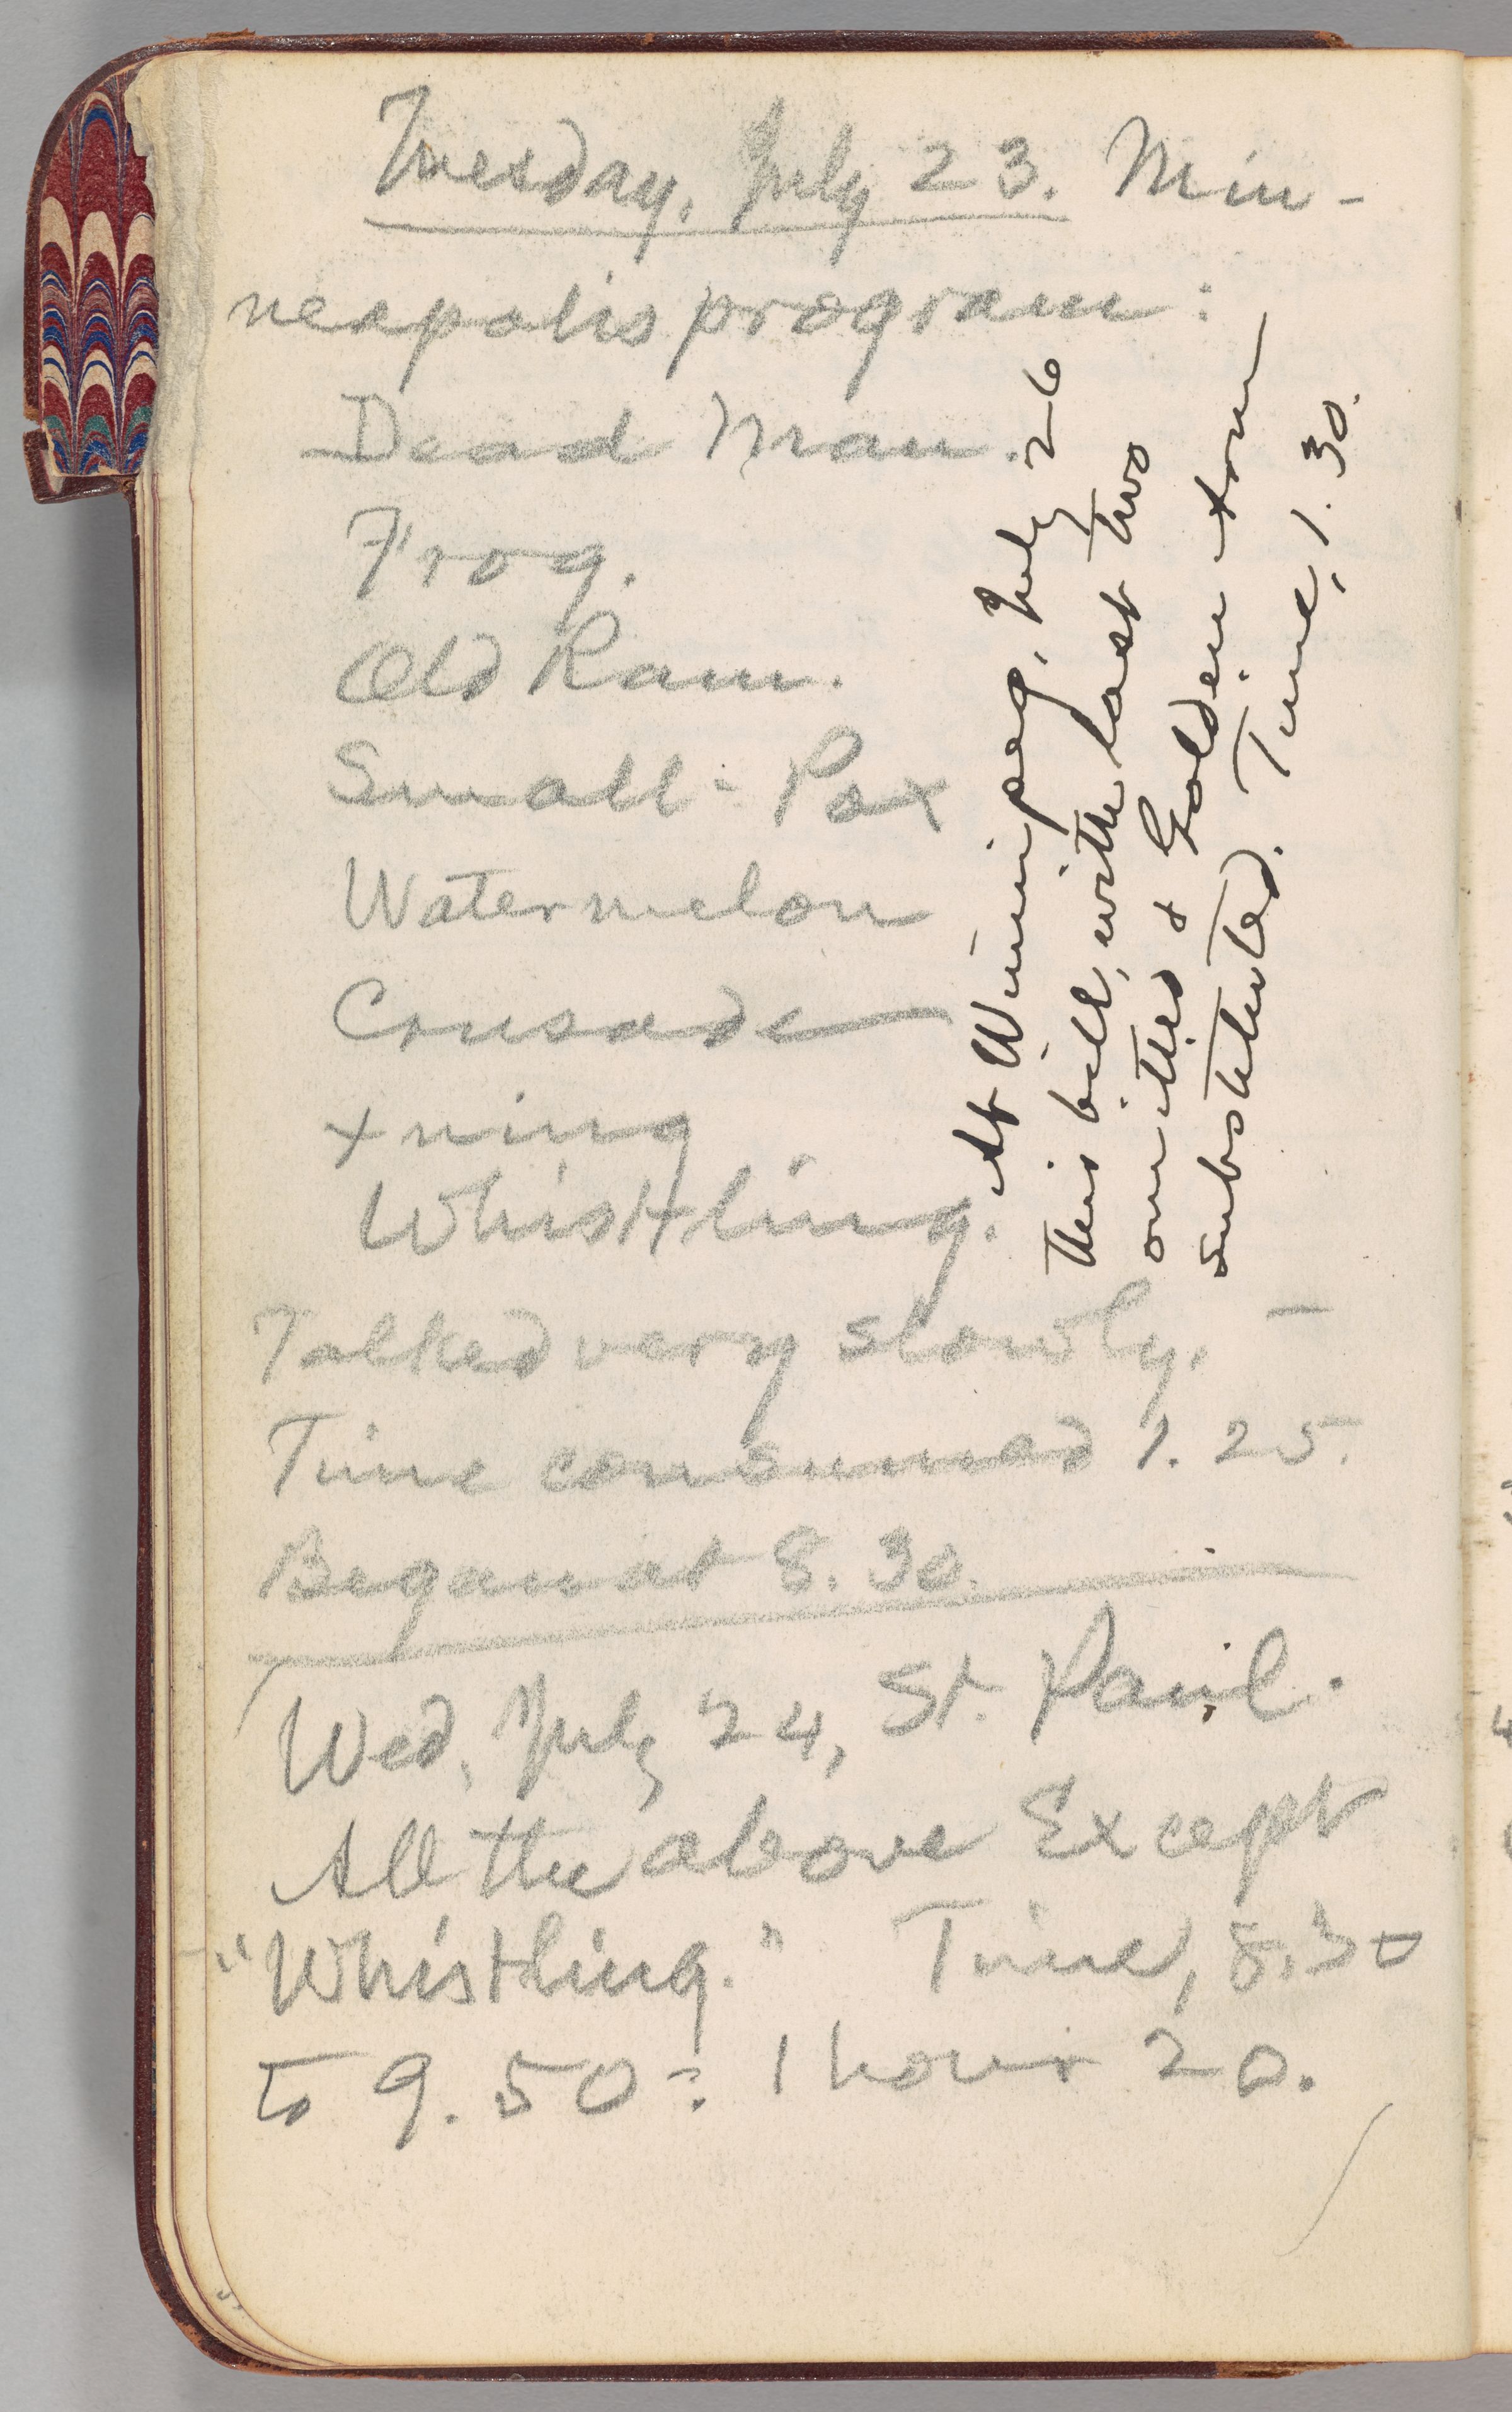 Tuesday, July 23. Min-
neapolis program:
Dead Man.
Frog.
Old Ram.
Small-Pox
Watermelon
Crusade
Xning
Whistling.
Talked very slowly. —
Time consumed 1.25.
Began at 8.30.
Wed, July 24, St. Paul.
All the above Except
"Whistling." Time, 8.30
to 9.50: 1 hour 20.
At Winnipeg, July 26
this bill, with the last two
omitted & Golden Arm
substituted. Time, 1.30.